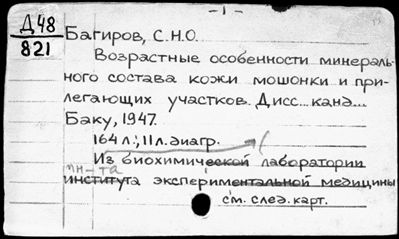 - 1 -
Д48
821
Багиров, С.Н.О.
Возрастные особенности минераль-
ного состава кожи мошонки и при-
легающих участков. Дисс... канд...
Баку, 1947.
164 л.; 11 л. диагр.
Из биохимической лаборатории
ин-та
института экспериментальной медицины
см. след. карт.